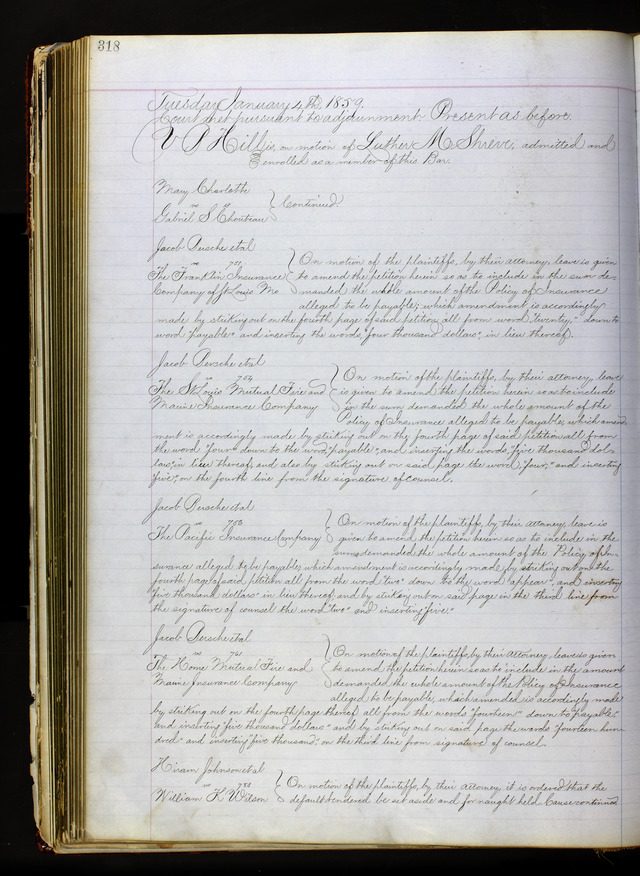 318
Tuesday January 4th 1859.
Court met pursuant to adjournment Present as before.
V P Hillis, on motion of Luther M Shreve, admitted and
enrolled as a member of this Bar.
Mary Charlotte
vs
Gabriel S Chouteau
Continued.
Jacob Dersche et al
vs
The Franklin Insurance
Company of St Louis Mo
On motion of the plaintiffs, by their attorney, leave is given
to amend the petition herein so as to include in the sum de-
manded the whole amount of the Policy of Insurance
alleged to be payable; which amendment is accordingly
made by striking out on the fourth page of said petition, all from word "twenty" down to
word "payable" and inserting the words, "four thousand dollars", in lieu thereof.
Jacob Dersche et al
vs 754
The St Louis Mutual Fire and
Marine Insurance Company
On motion of the plaintiffs, by their attorney, leave
is given to amend the petition herein so as to include
in the sum demanded the whole amount of the
Policy of Insurance alleged to be payable, which amend
ment is accordingly made by striking out on the fourth page of said petition all from
the word "four" down to the word "payable", and inserting the words, "five thousand dol-
lars", in lieu thereof, and also by striking out on said page the word, "four," and inserting
"five", on the fourth line from the signature of counsel.
Jacob Dersche et al
vs
The Pacific Insurance Company
On motion of the plaintiffs, by their attorney, leave is
given to amend the petition herein so as to include in the
sum demanded the whole amount of the Policy of In-
surance alleged to be payable, which amendment is accordingly made, by striking out on the
fourth page of said petition all from the word "two" down to the word "appear", and inserting
"five thousand dollars" in lieu thereof, and by striking out on said page in the third line from
the signature of counsel the word "two" and inserting "five."
Jacob Dersche et al
vs 761
The Home Mutual Fire and
Marine Insurance Company
On motion of the plaintiffs, by their attorney, leave is given
to amend the petition herein so as to include in the amount
demanded the whole amount of the Policy of Insurance
alleged to be payable, which amended is accordingly made
by striking out on the fourth page thereof all from the words "fourteen" down to "payable",
and inserting "five thousand dollars" and by striking out on said page the words "fourteen hun
dred" and inserting "five thousand", on the third line from signature of counsel.
Hiram Johnson et al
vs 788
William H Wilson
On motion of the plaintiffs, by their attorney it is ordered that the
default rendered be set aside and for naught held. Cause continued